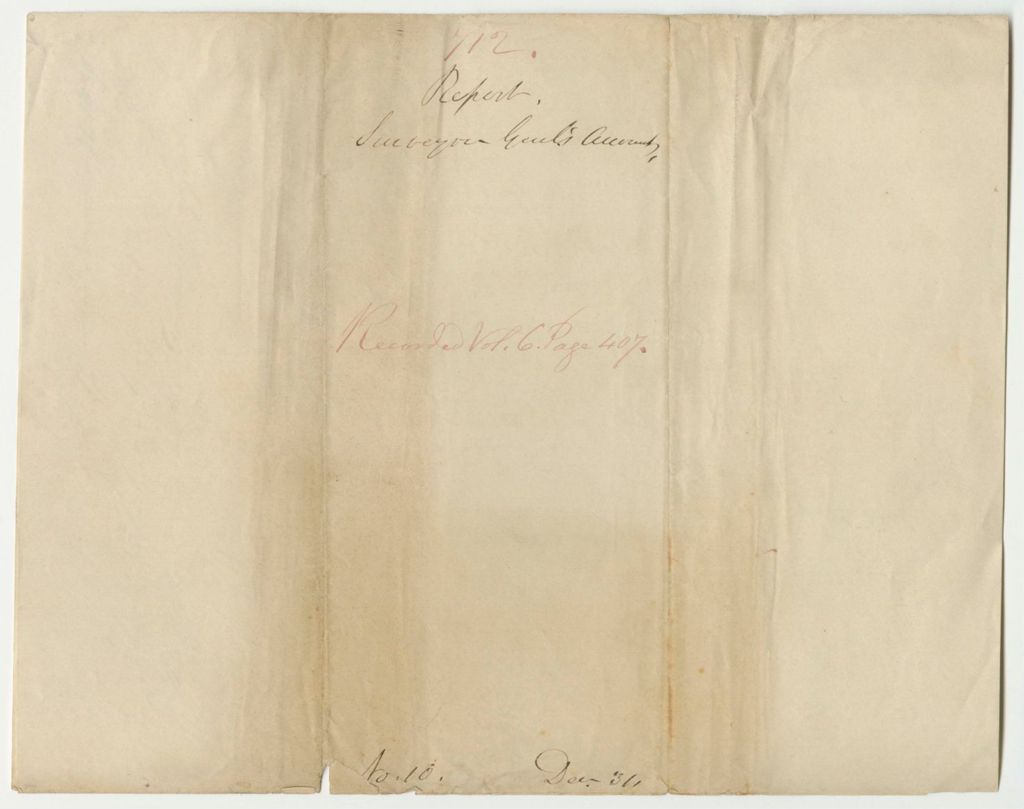 712.
Report.
Surveyor Genl's Account,
Recorded Vol. 6. Page 407.
No. 10. Dec. 31,